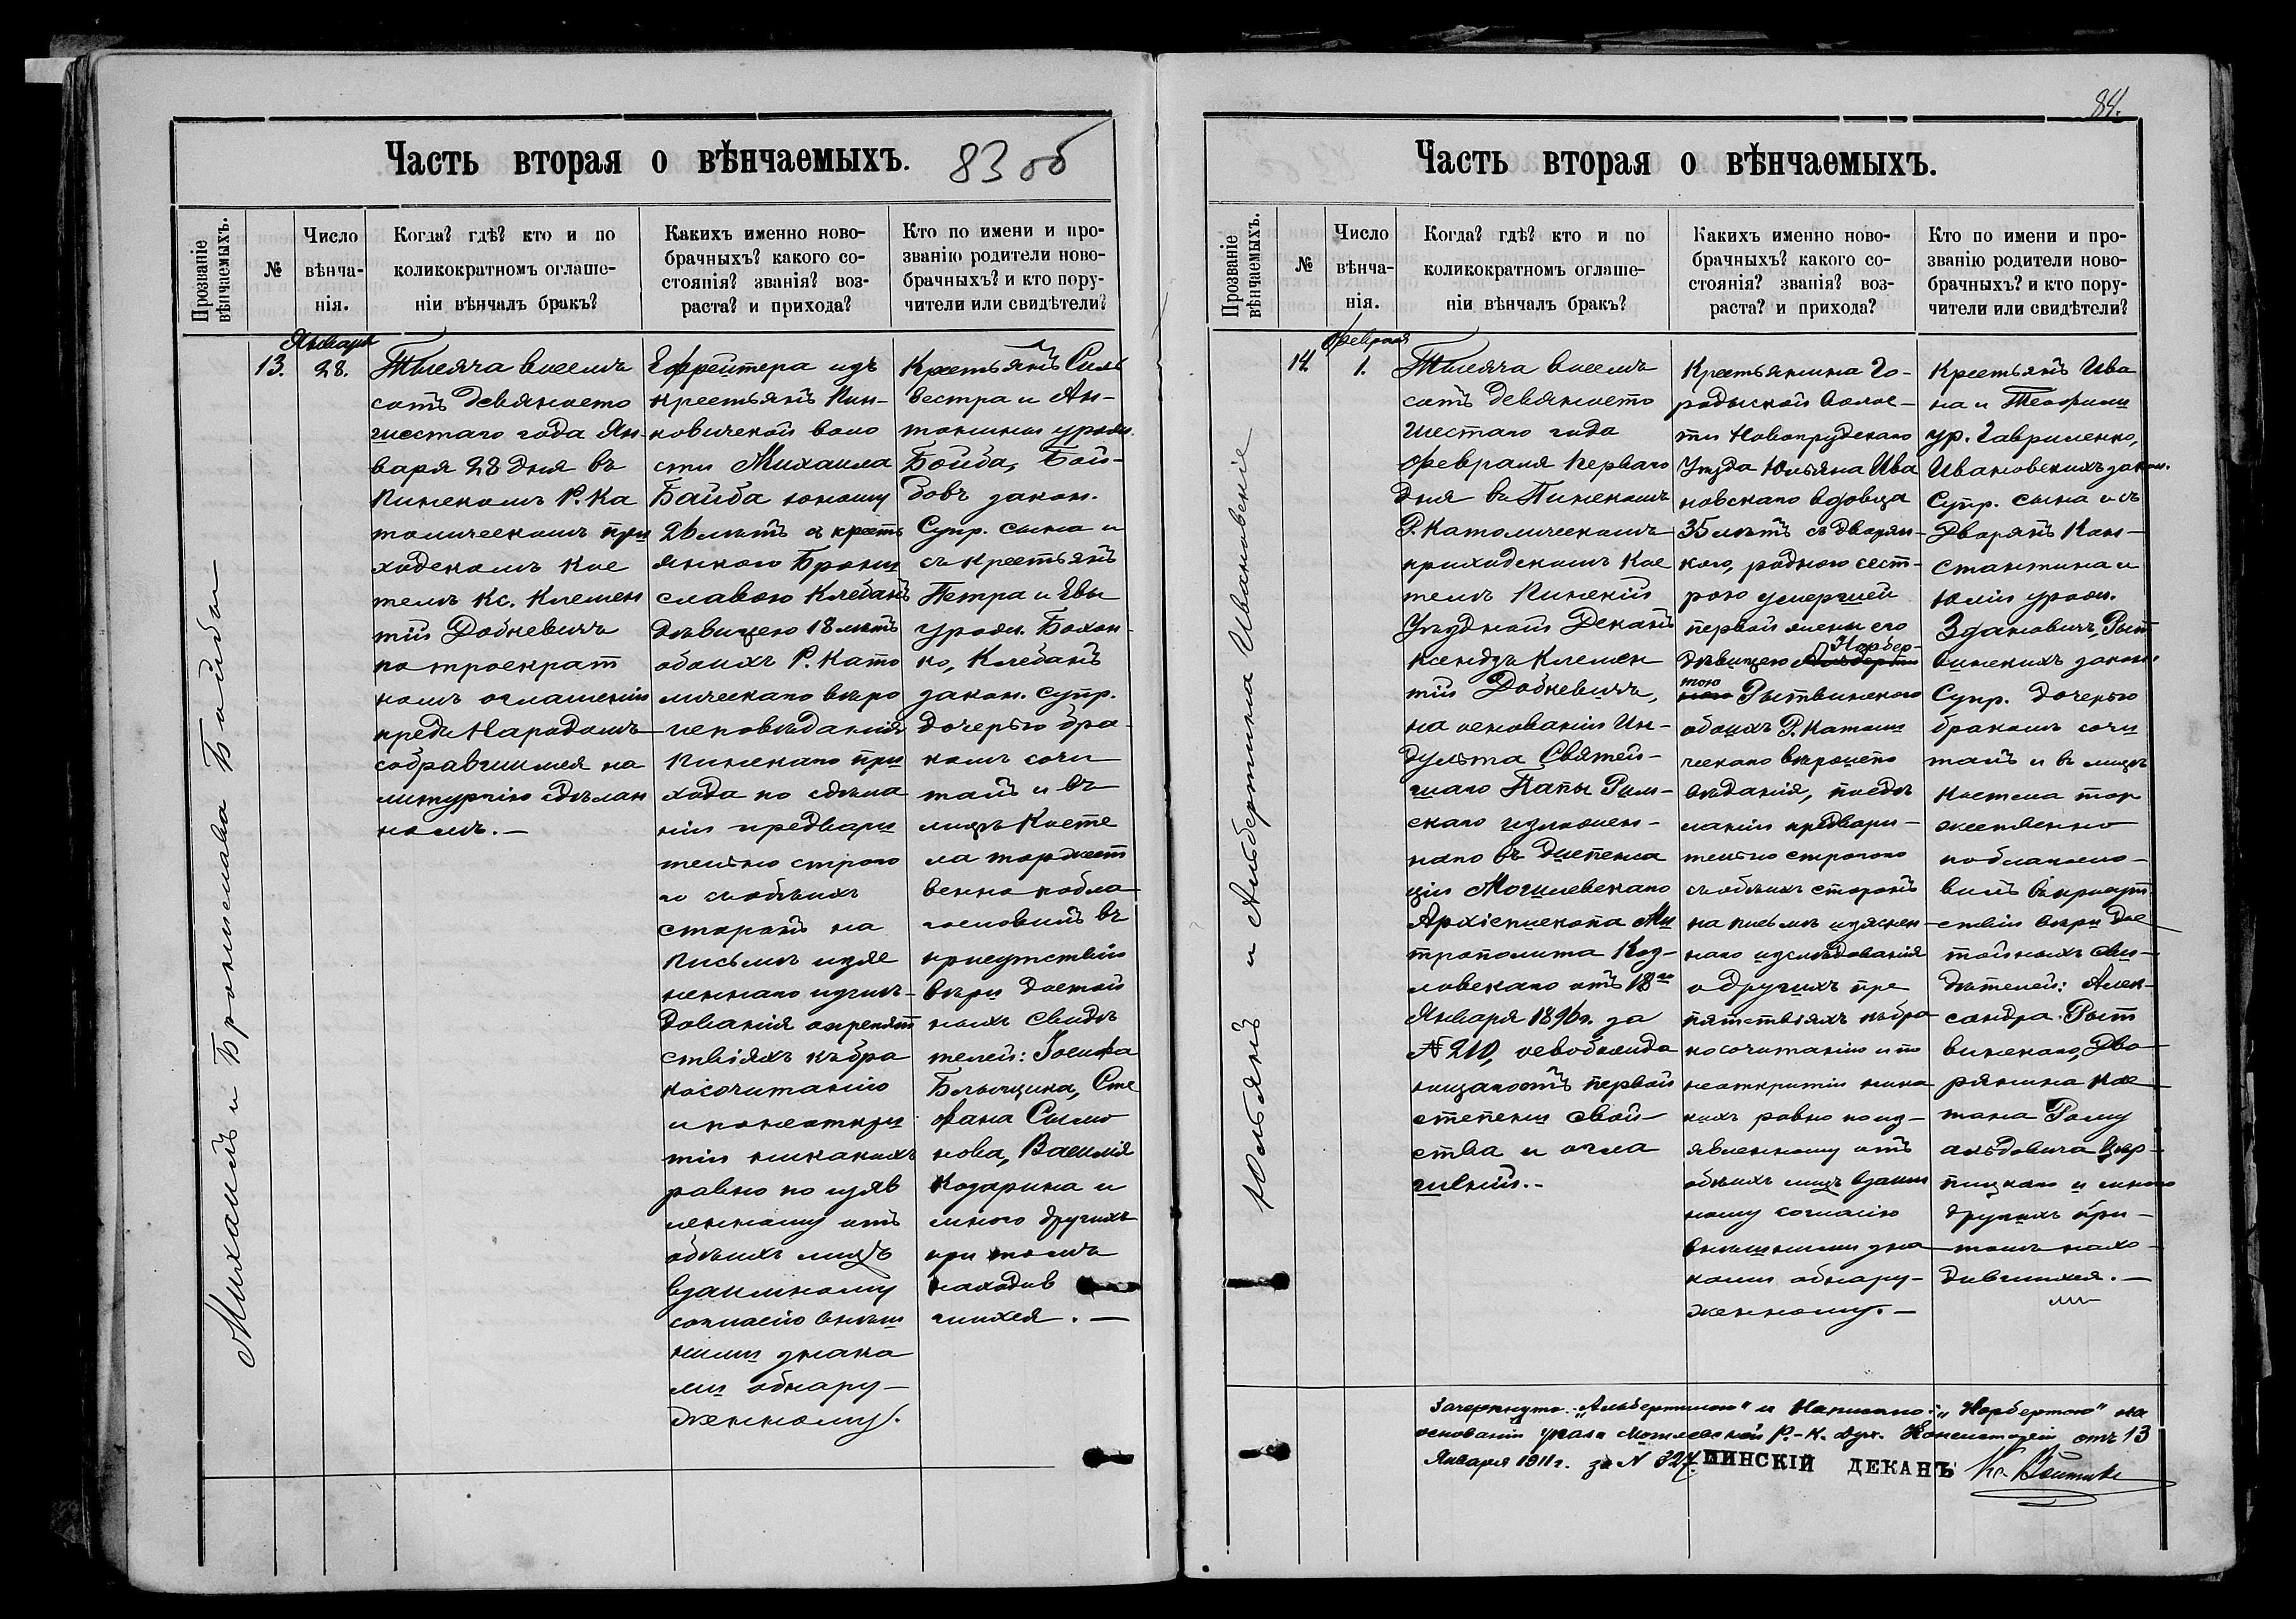 84.
Часть вторая о вѣнчаемыхъ. 83 об
Прозваніе вѣнчаемыхъ.
№
Число вѣнча-нія.
Когда? гдѣ? кто и по
коликократномъ оглаше-
ніи вѣнчалъ бракъ?
Какихъ именно ново-
брачныхъ? какого со-
стоянія? званія? воз-
раста? и прихода?
Кто по имени и про-
званію родители ново-
брачныхъ? и кто пору-
чители или свидѣтели?
Михаилъ и Бронислава Байбы
13.
Января
28.
Тысяча восемь
сотъ девяносто
шестаго года Ян-
варя 28 дня въ
Пинскомъ Р. Ка
толическомъ при
ходскомъ Кос
телѣ Кс. Клемен
тій Добкевичъ
по троекрат
номъ оглашеніи
предъ Народомъ
собравшимся на
литургію сдѣлан
номъ.—
Ефрейтера изъ
крестьянъ Пин-
ковичской воло
сти Михаила
Байба юношу
26 лѣтъ съ кресть
янкою Брони
славою Клебанъ
дѣвицею 18 лѣтъ
обоихъ Р. Като
лическаго вѣро
исповѣданія
Пинскаго при
хода по сдѣла
ніи предвари
тельно строго
го съ обѣихъ
сторонъ на
письмѣ изяс
неннаго изслѣ-
дованія о препят
ствіяхъ къ бра
косочитанію
и по неоткры
тіи никакихъ
равно по изяв
ленному отъ
обѣихъ лицъ
взаимному
согласію внѣш
ними знака
ми обнару-
женному.
Крестьянъ Силь
вестра и Ан-
тонины урожд.
Бойба, Бой-
бовъ закон.
Супр. сына и
съ крестьянъ
Петра и Евы
урожд. Бохон-
ко, Клебанъ
закон. супр.
дочерью бра-
комъ сочи
талъ и въ
лицѣ Косте
ла торжест
венно побла
гословилъ въ
присутствіи
вѣры достой
ныхъ свидѣ
телей: Іосифа
Блыщика, Сте
фана Сымо
нова, Василія
Козарина и
много другихъ
при томъ
находив
шихся.—
Часть вторая о вѣнчаемыхъ.
Прозваніе вѣнчаемыхъ.
№
Число вѣнча-нія.
Когда? гдѣ? кто и по
коликократномъ оглаше-
ніи вѣнчалъ бракъ?
Какихъ именно ново-
брачныхъ? какого со-
стоянія? званія? воз-
раста? и прихода?
Кто по имени и про-
званію родители ново-
брачныхъ? и кто пору-
чители или свидѣтели?
Юльянъ и Альбертина Ивановскіе
14.
Февраля
1.
Тысяча восемь
сотъ девяносто
шестаго года
Февраля перваго
дня въ Пинскомъ
Р. Католическомъ
приходскомъ Кос
телѣ Пинскій
Уѣздный Деканъ
ксендзъ Клемен
тій Добкевичъ,
на основаніи Ин-
дульта Святей-
шаго Папы Рим-
скаго изложен-
наго въ Диспенса
ціи Могилевскаго
Архіепископа Ми
трополита Коз-
ловскаго отъ 18го
Января 1896г. за
№ 210, освобожда
ющаго отъ первой
степени свой-
ства и огла
шеній.-
Крестьянина Го-
родыской волос-
ти Новогрудскаго
Уѣзда Юльяна Ива
новскаго вдовца
35 лѣтъ съ дворян-
кою, родною сест-
рою умершей
первой жены его
Норбер-
дѣвицею Альберти
тою
ною Рытвинскою
обоихъ Р. Католи
ческаго вѣроиспо
вѣданія, по сдѣ
ланіи предвари-
тельно строгаго
съ обѣихъ сторонъ
на письмѣ изяснен-
наго изслѣдованія
о другихъ пре
пятствіяхъ къ бра
косочитанію и по
неоткрытіи ника
кихъ равно по из-
явленному отъ
обѣихъ лицъ взаим
ному согласію
внѣшними зна
ками обнару-
женному.—
Крестьянъ Ива
на и Теофили
ур. Гавриленко,
Ивановскихъ закон.
Супр. сына и съ
Дворянъ Кон-
стантина и
Юліи урожд.
Здановичъ, Рыт
винскихъ закон.
Супр. дочерью
бракомъ сочи
талъ и въ лицѣ
Костела тор
жественно
поблагосло-
вилъ въ присут
ствіи вѣры дос
тойныхъ сви-
дѣтелей: Алек-
сандра Рыт
винскаго, Дво
рянина Кае
тана Рому
альдовича
и много
другихъ при-
томъ нахо-
дившихся.—
Зачеркнуто: „Альбертиною" и Написано: „Норбертою" на
основаніи указа Могилевской Р.-К. Дух. Консисторіи отъ 13
Января 1911г. за № 327. ПИНСКІЙ ДЕКАНЪ Кс.